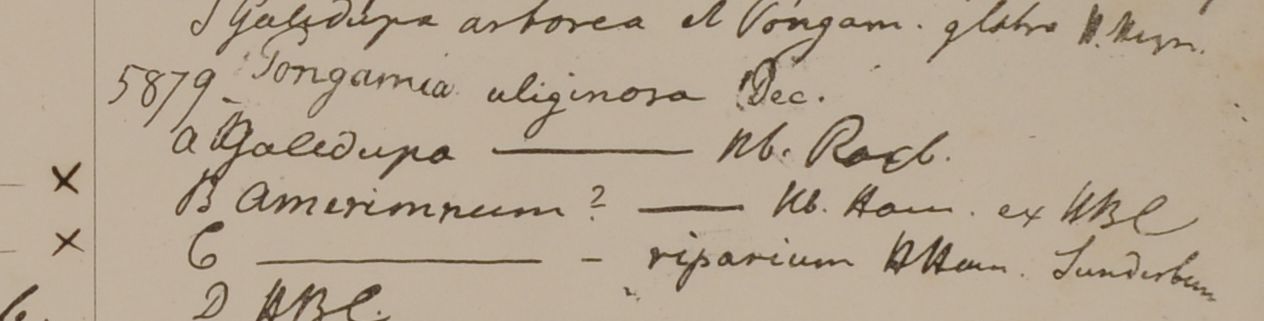 Galedupa arborea et Pongam. glabra H. Heyn.
5879 Pongamia uliginosa Dec.
a Galedupa — Hb. Roxb.
B Amerimnum? — Hb. Ham. ex HBC
C — - riparium HHam. Sunderbun
D HBC.